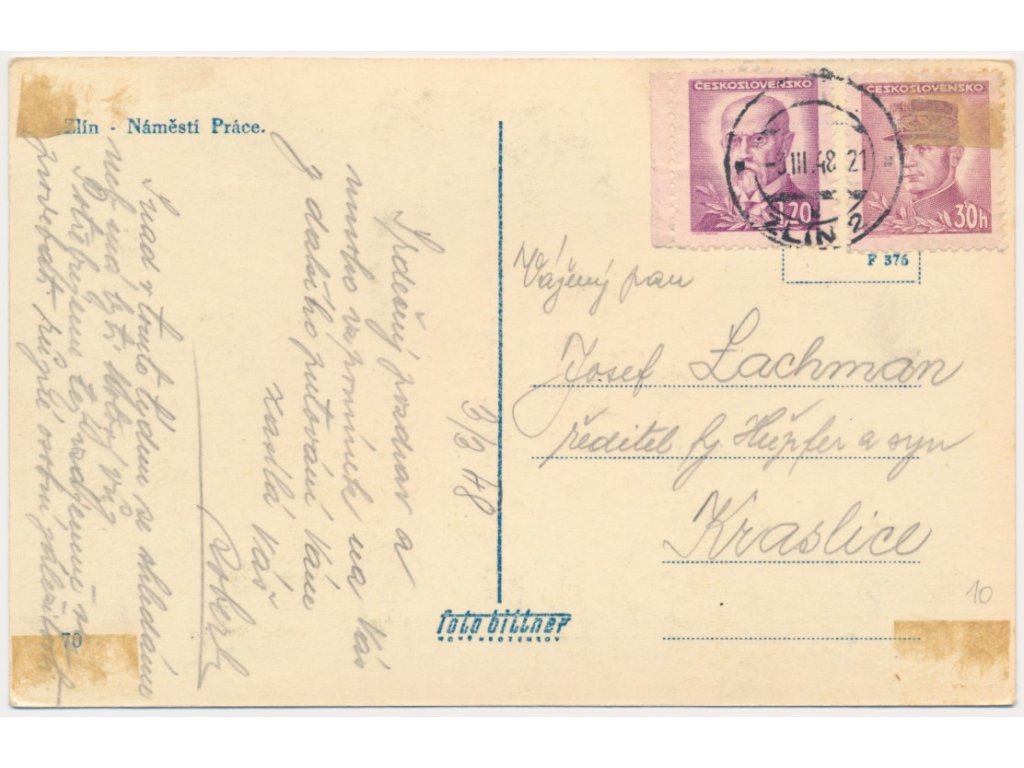 Zlín - Náměstí Práce.
ČESKOSLOVENSKO
1.20
ČESKOSLOVENSKO
30h
III.48 21
ZLÍN 2
F 376
Srdečný pozdrav a
mnoho vzpomínek na Vás
z dalšího putování Vám
zasílá Váš
Robert
3/3 48
Snad v tomto týdnu se shledáme
Potřebujeme též
osobní
Vážený pan
Josef Lachman
ředitel fy Hüpfer a syn
Kraslice
10
foto bittner
70